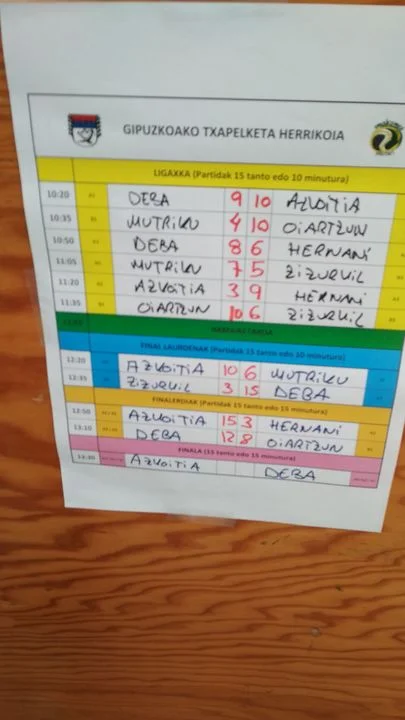 GIPUZKOAKO TXAPELKETA HERRIKOIA
LIGAXKA (Partidak 15 tanto edo 10 minutura)
10:20 DEBA 9 10 AZKOITIA
10:35 MUTRIKU 4 10 OIARTZUN
10:50 DEBA 8 6 HERNANI
11:05 MUTRIKU 7 5 ZIZURKIL
11:20 AZKOITIA 3 9 HERNANI
11:35 OIARTZUN 10 6 ZIZURKIL
FINAL LAURDENAK (Partidak 15 tanto edo 10 minutura)
12:20 AZKOITIA 10 6 MUTRIKU
12:35 ZIZURKIL 3 15 DEBA
FINALERDIAK (Partidak 15 tanto edo 15 minutura)
12:50 AZKOITIA 15 3 HERNANI
13:10 DEBA 12 8 OIARTZUN
FINALA (15 tanto edo 15 minutura)
13:30 AZKOITIA DEBA